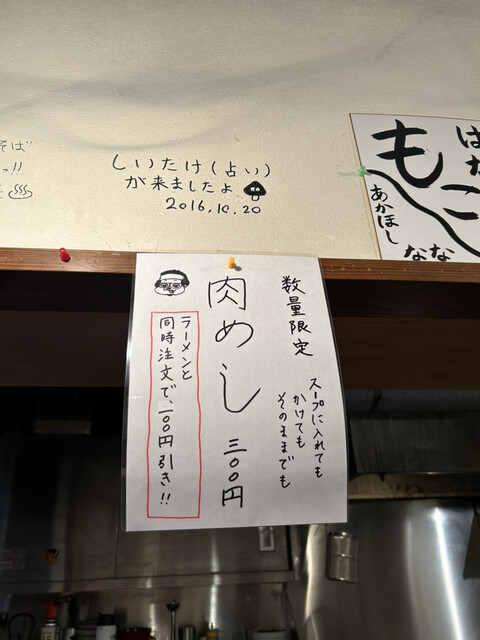 そば
っ!!
しいたけ(占い)
が来ましたよ
2016.10.20
はな
もこ
あかほし
なな
数量限定
スープに入れても
かけても
そのままでも
肉めし 三〇〇円
ラーメンと
同時注文で、一〇〇円引き!!